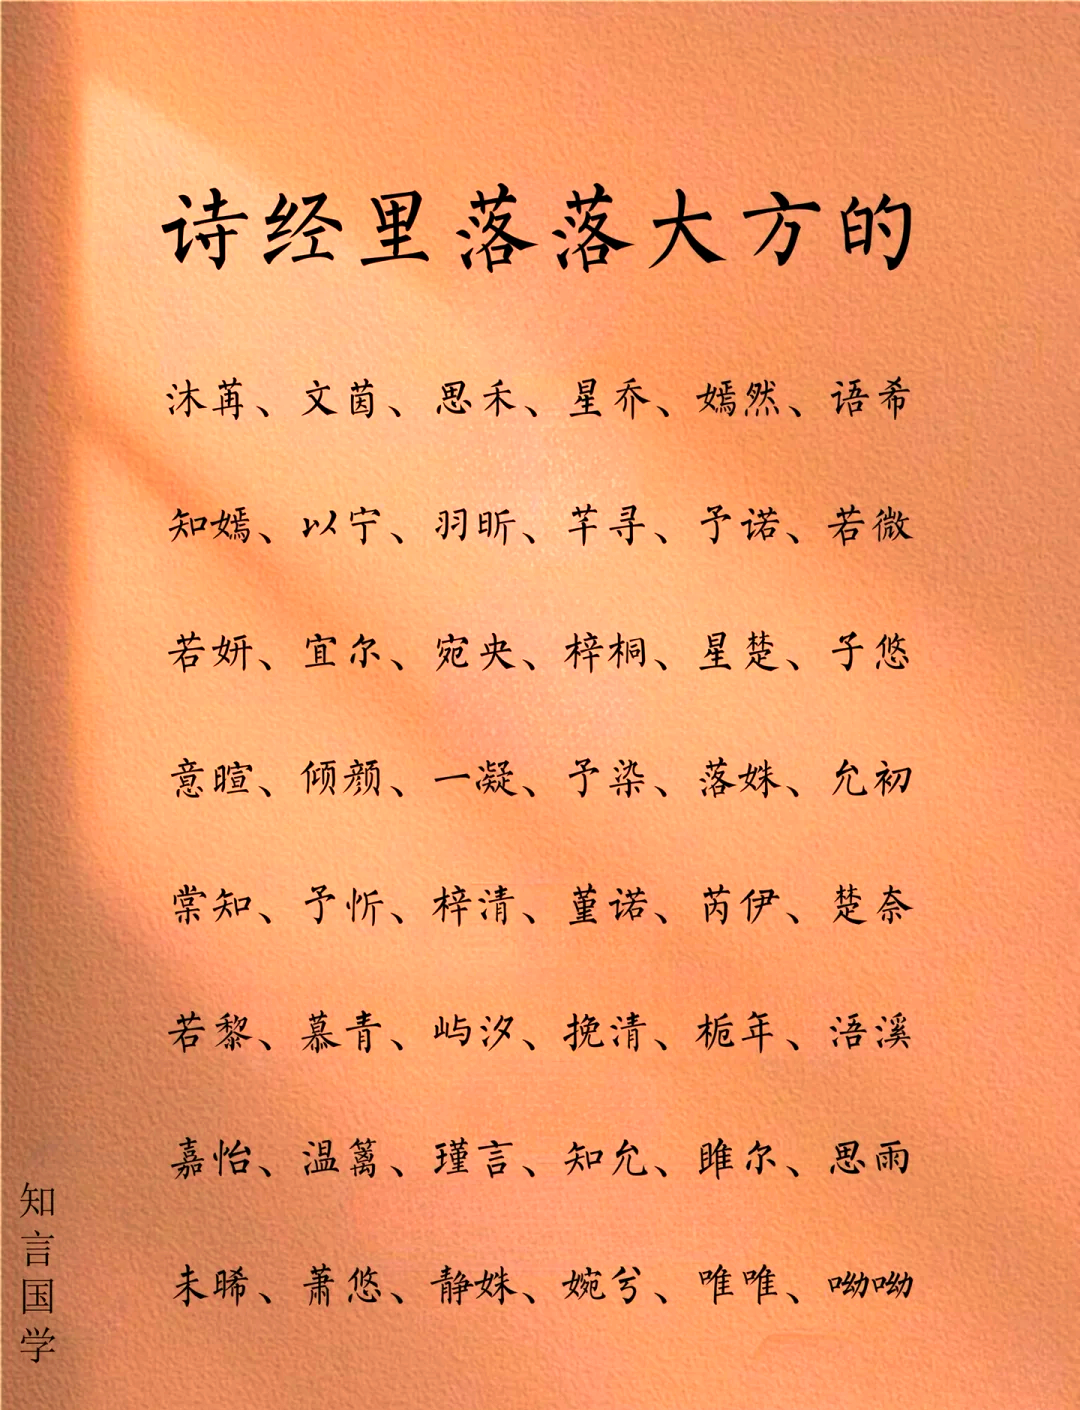 诗经里落落大方的
沐苒、文茵、思禾、星乔、嫣然、语希
知嫣、以宁、羽昕、芊寻、予诺、若微
若妍、宜尔、宛央、梓桐、星楚、子悠
意暄、倾颜、一凝、予染、落姝、允初
棠知、予忻、梓清、堇诺、芮伊、楚奈
若黎、慕青、屿汐、挽清、栀年、浯溪
嘉怡、温篱、瑾言、知允、雎尔、思雨
未晞、萧悠、静姝、婉兮、唯唯、呦呦
知言国学